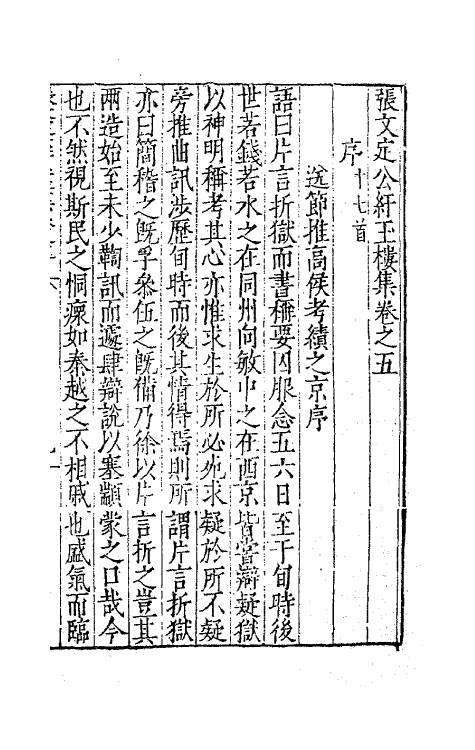 張文定公紆玉樓集卷之五
序十七首
送節推高侯考績之京序
語曰片言折獄而書稱要囚服念五六日至于旬時後
世若錢若水之在同州向敏中之在西京皆嘗辯疑獄
以神明稱考其心亦惟求生於所必死求疑於所不疑
旁推曲訊涉歷旬時而後其情得焉則所謂片言折獄
亦曰簡稽之既孚參伍之既備乃徐以片言折之豈其
兩造始至未少鞫訊而遽肆辯說以塞顓蒙之口哉今
也不然視斯民之恫瘝如秦越之不相戚也盛氣而臨